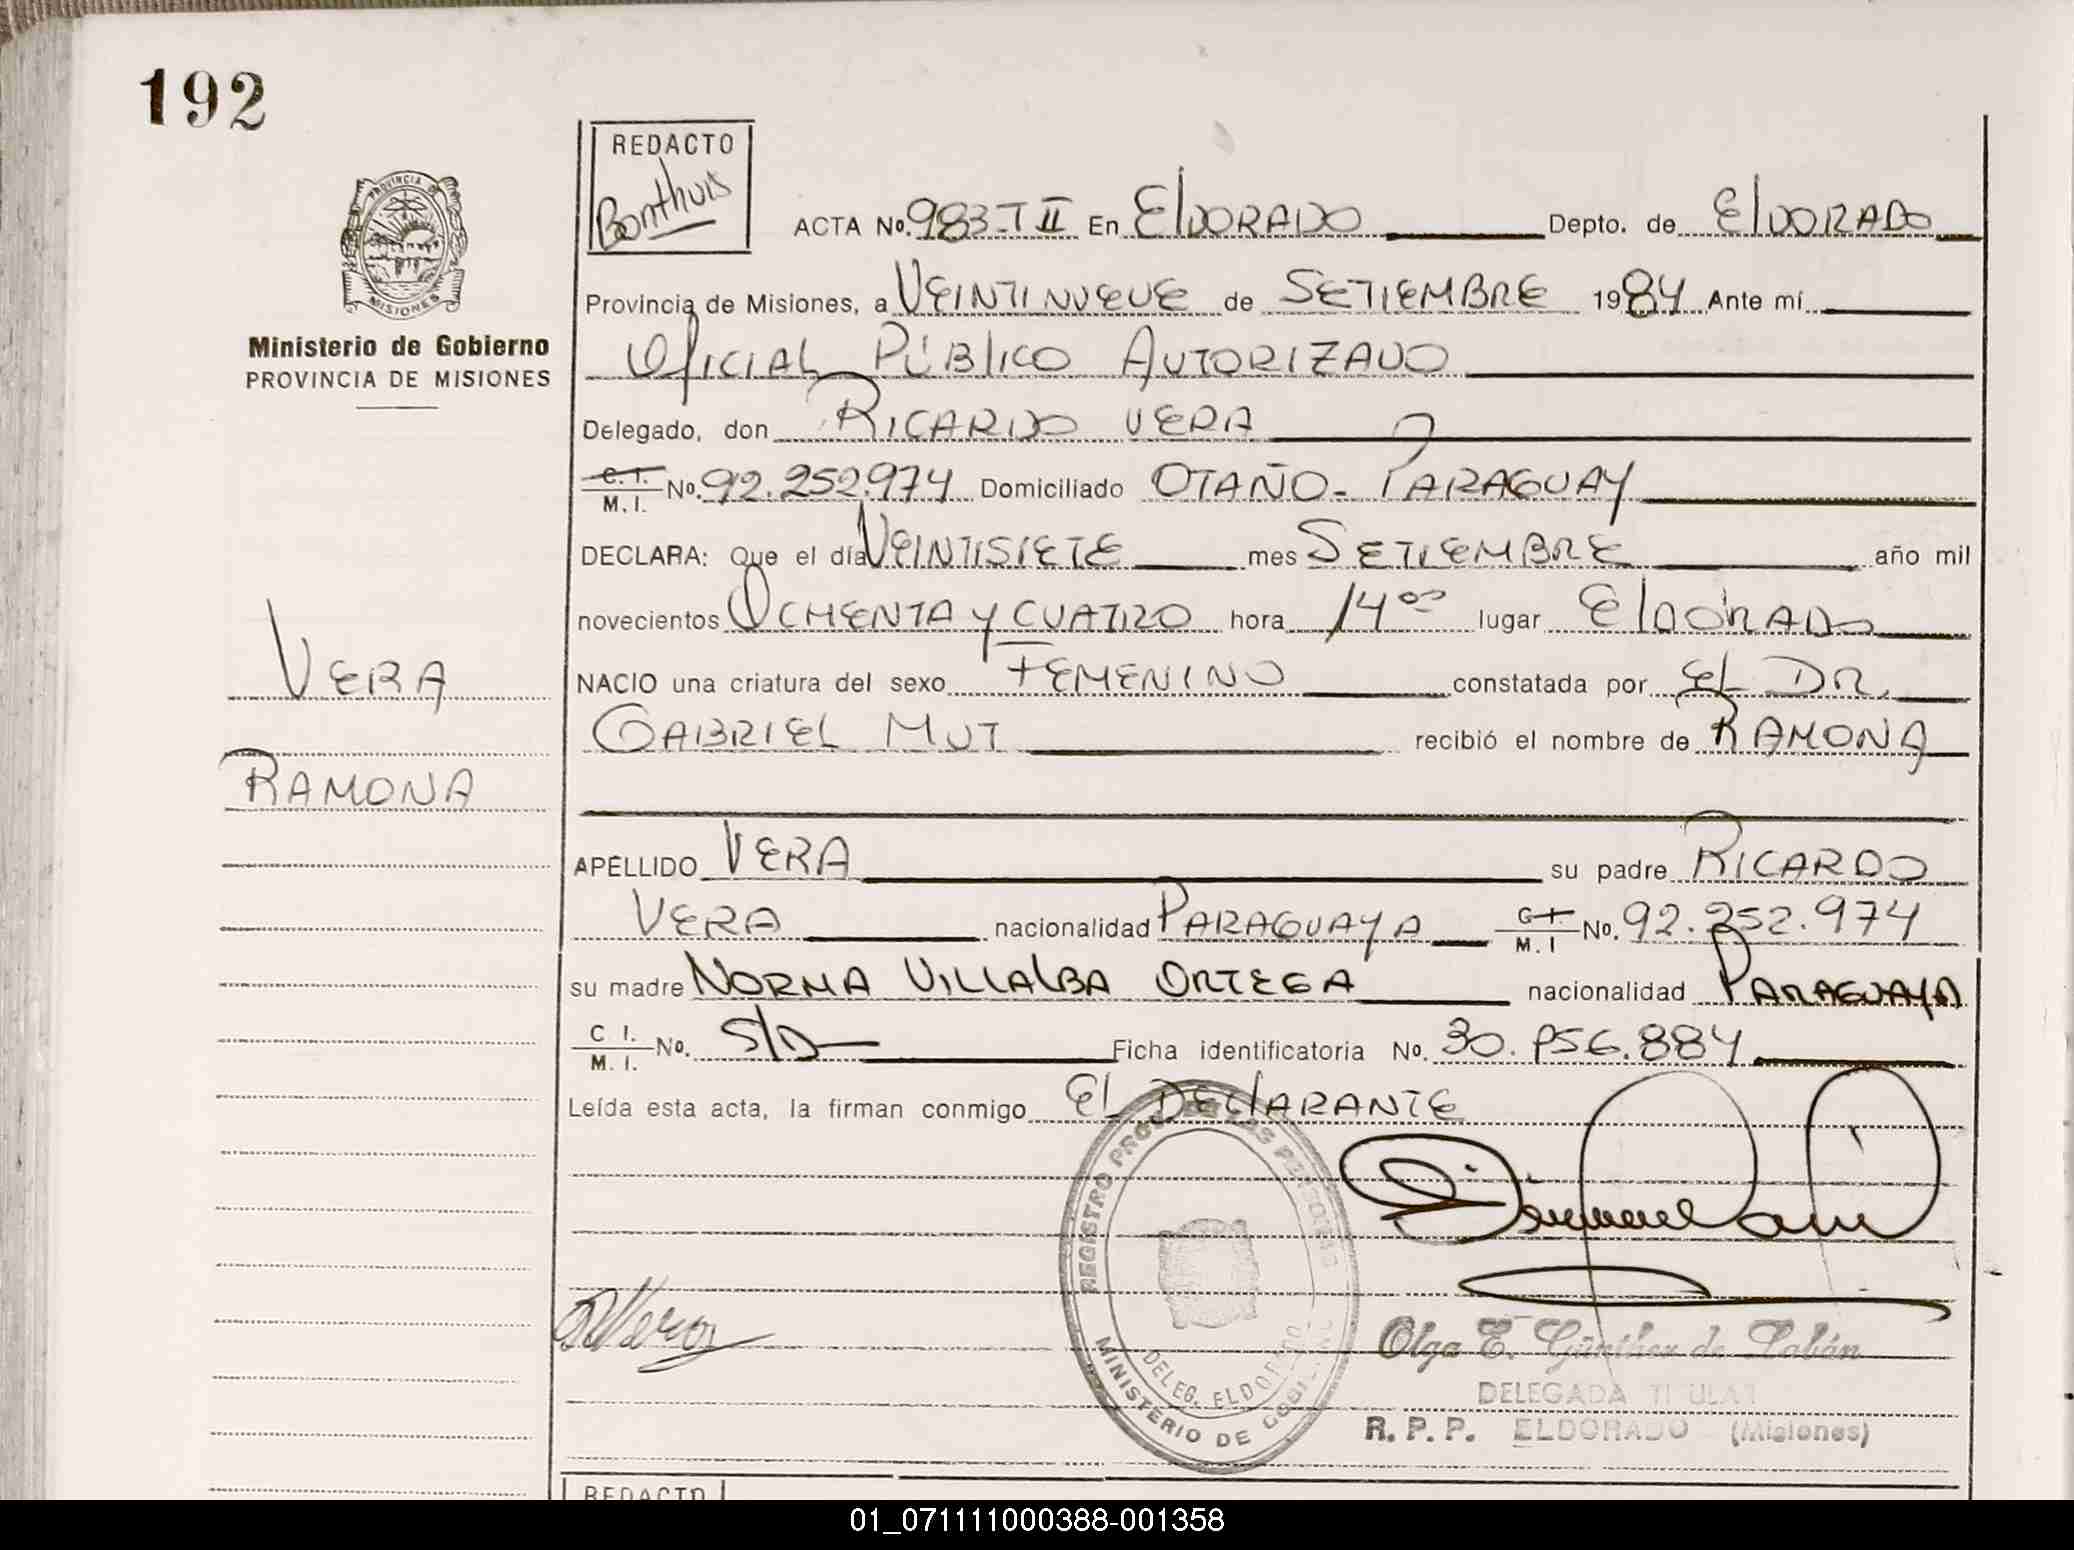 192
REDACTO
Bonthuis
PROVINCIA DE
MISIONES
Ministerio de Gobierno
PROVINCIA DE MISIONES
ACTA No. 983-T II En ELDORADO Depto. de ELDORADO
Provincia de Misiones, a VEINTINUEVE de SETIEMBRE 1984 Ante mí
OFICIAL PÚBLICO AUTORIZADO
Delegado, don RICARDO VERA
C. I. M. I. No. 92.252.974 Domiciliado OTAÑO - PARAGUAY
DECLARA: Que el día VEINTISIETE mes SETIEMBRE año mil
novecientos OCHENTA Y CUATRO hora 14 oo lugar ELDORADO
NACIO una criatura del sexo FEMENINO constatada por EL DR.
GABRIEL MUT recibió el nombre de RAMONA
VERA
RAMONA
APELLIDO VERA su padre RICARDO
VERA nacionalidad PARAGUAYA C. I. M. I No. 92.252.974
su madre NORMA VILLALBA ORTEGA nacionalidad PARAGUAYA
C I. M. I. No. S/D Ficha identificatoria No. 30.856.884
Leída esta acta, la firman conmigo EL DECLARANTE
REGISTRO PROV. DE LAS PERSONAS
DELEG. ELDORADO
MINISTERIO DE GOBIERNO
Olga E. Günther de Labán
DELEGADA TITULAR
R. P. P. ELDORADO (Misiones)
REDACTO
01_071111000388-001358